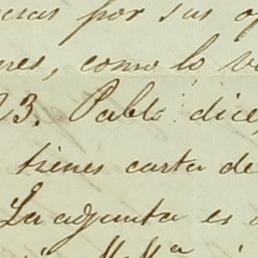 por sus
nes, como lo
23. Pablo dice
tienes carta de
La adjunta es